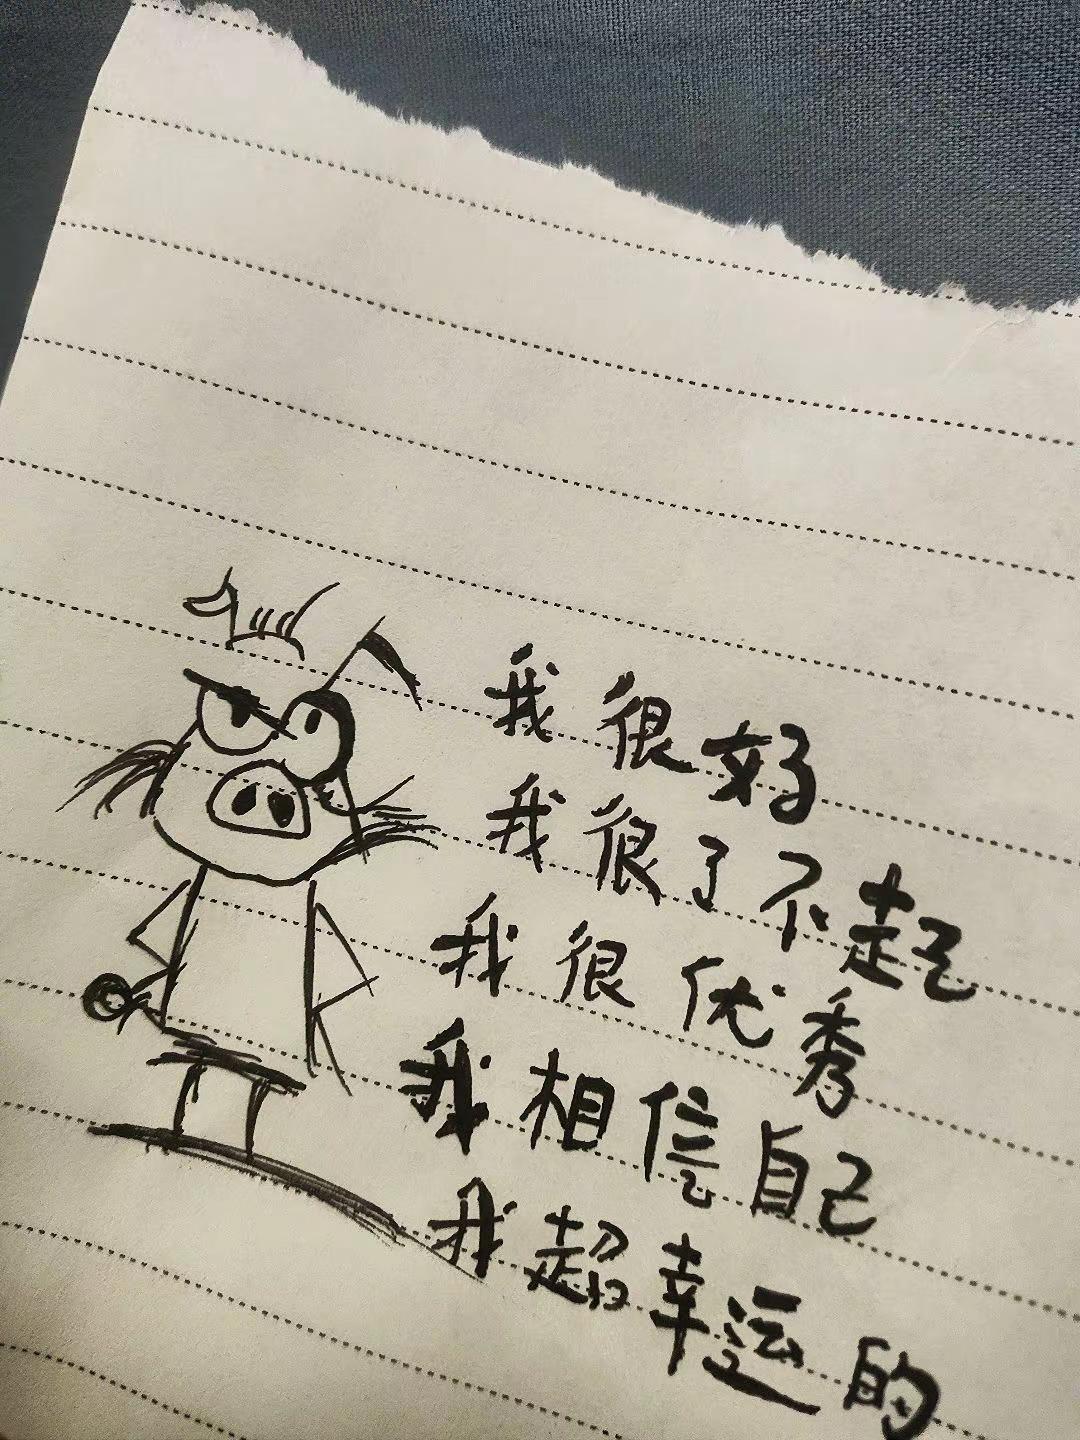 我很好
我很了不起
我很优秀
我相信自己
我超幸运的